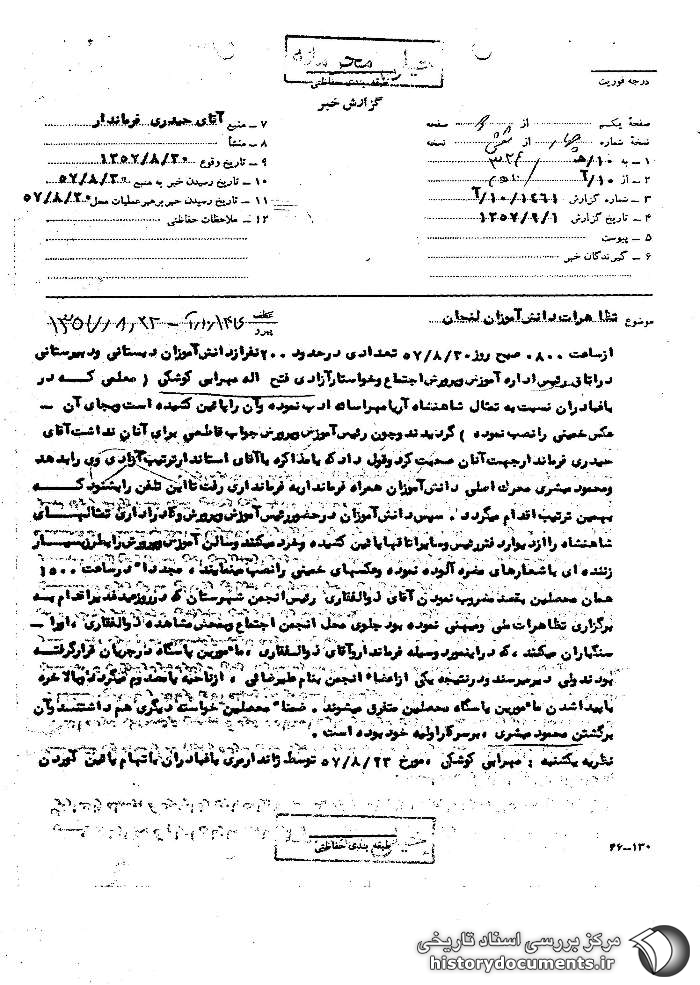 خیلی محرمانه
طبقه بندی حفاظتی
گزارش خبر
درجه فوریت
صفحهٔ یکم از دو صفحه
نسخهٔ شماره چهار از شش نسخه
۱ ـ به ۱۰/هـ ۳۲۶
۲ ـ از ۱۰/آ
۳ ـ شماره گزارش ۱۰/۱۴۶۱/آ
۴ ـ تاریخ گزارش ۱۳۵۷/۹/۱
۵ ـ پیوست
۶ ـ گیرندگان خبر
۷ ـ منبع آقای حیدری فرماندار
۸ ـ منشأ
۹ ـ تاریخ وقوع ۱۳۵۷/۸/۳۰
۱۰ ـ تاریخ رسیدن خبر به منبع ۵۷/۸/۳۰
۱۱ ـ تاریخ رسیدن خبر برهبر عملیات محل ۵۷/۸/۳۰
۱۲ ـ ملاحظات حفاظتی
موضوع تظاهرات دانش آموزان لنجان
عطف
پیرو
ازساعت ۰۸۰۰ صبح روز ۵۷/۸/۳۰ تعدادی درحدود ۲۰۰ نفرازدانش آموزان دبستانی ودبیرستانی
دراتاق رئیس اداره آموزش وپرورش اجتماع وخواستارآزادی فتح اله مهرابی کوشکی ( معلمی که در
باغبادران نسبت به تمثال شاهنشاه آریامهراسائه ادب نموده وآن راپائین کشیده است وبجای آن ـ
عکس خمینی رانصب نموده ) گردیدند وچون رئیس آموزش وپرورش جواب قاطعی برای آنان نداشت آقای
حیدری فرماندارجهت آنان صحبت کرد وقول داد که بامذاکره باآقای استاندارترتیب آزادی وی رابدهد
ومحمود مبشری محرک اصلی دانش آموزان همراه فرمانداربه فرمانداری رفت تااین تلفن رابشنود که
بهمین ترتیب اقدام میگردد . سپس دانش آموزان درحضوررئیس آموزش وپرورش وکادراداری تمثالهای
شاهنشاه راازدیوارد فتررئیس وسایراتاقهاپائین کشیده وخرد میکنند وسالن آموزش وپرورش رابطرزبسیار
زننده ای باشعارهای مضره آلوده نموده وعکسهای خمینی رانصب مینمایند ، مجددا" درساعت ۱۵۰۰
همان محصلین بقصد مضروب نمودن آقای ذوالفقاری رئیس انجمن شهرستان که درروزعیدغدیراقدام به
برگزاری تظاهرات ملی ومیهنی نموده بود جلوی محل انجمن اجتماع وبمحض مشاهده ذوالفقاری ،اورا ـ
سنگباران میکنند ، که دراینمورد وسیله فرمانداروآقای ذوالفقاری ،مامورین پاسگاه درجریان قرارگرفته
بودند ولی دیرمیرسند ودرنتیجه یکی ازاعضاء انجمن بنام علیرضائی ، ازناحیه پامصدوم میگردد وبالاخره
باپیداشدن مامورین پاسگاه محصلین متفرق میشوند . ضمنا" محصلین خواسته دیگری هم داشتند وآن
برگشتن محمود مبشری ،برسرکاراولیه خود بوده است .
نظریه یکشنبه : مهرابی کوشکی ،مورخ ۵۷/۸/۲۳ توسط ژاندارمری باغبادران باتهام پائین آوردن
طبقه بندی حفاظتی
۴۶-۱۳۰
مرکز بررسی اسناد تاریخی
historydocuments.ir